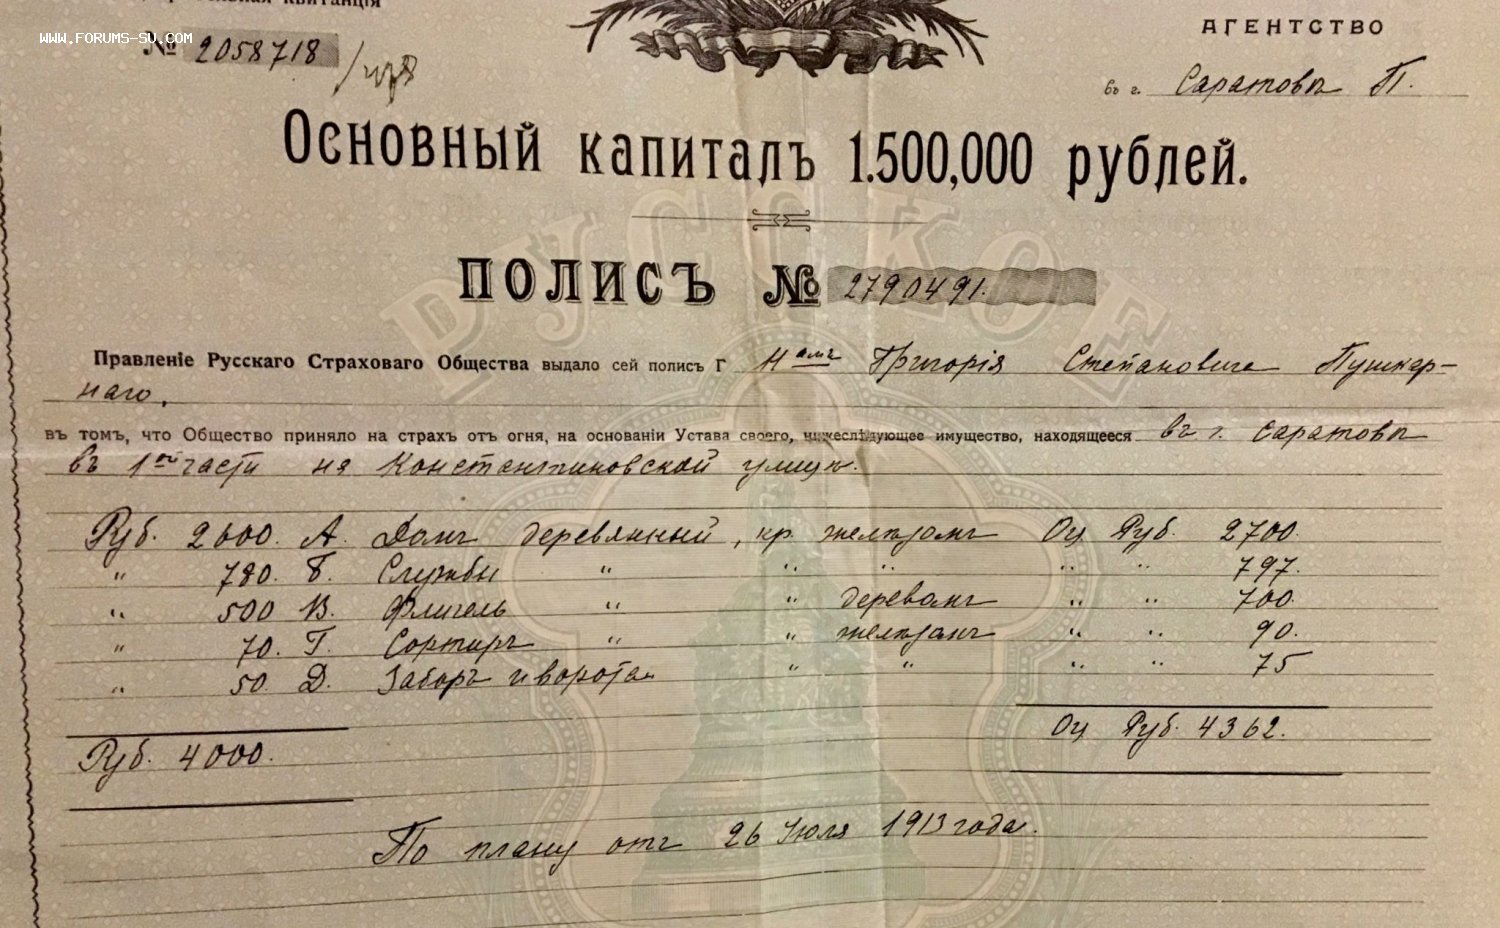 квитанція
WWW.FORUMS-SU.COM
№ 2058718
АГЕНТСТВО
въ г. Саратовѣ П.
Основный капиталъ 1.500,000 рублей.
РУССКОЕ
ПОЛИСЪ № 2790491.
Правленіе Русскаго Страховаго Общества выдало сей полисъ Г Григорія Степановича Пушкар-
наго,
въ томъ, что Общество приняло на страхъ отъ огня, на основаніи Устава своего, нижеслѣдующее имущество, находящееся въ г. Саратовѣ
въ 1ой части на Константиновской улицѣ.
Руб. 2600. А. Домъ деревянный, кр. желѣзомъ Оц. Руб. 2700.
" 780. Б. Службы " " " " " 797.
" 500 В. Флигель " " деревомъ " " 700.
" 70. Г. Сортиръ " " желѣзомъ " " 90.
" 50. Д. Заборъ и ворота " " " " 75
Руб. 4000. Оц Руб. 4362.
По плану отъ 26 Июля 1913 года.